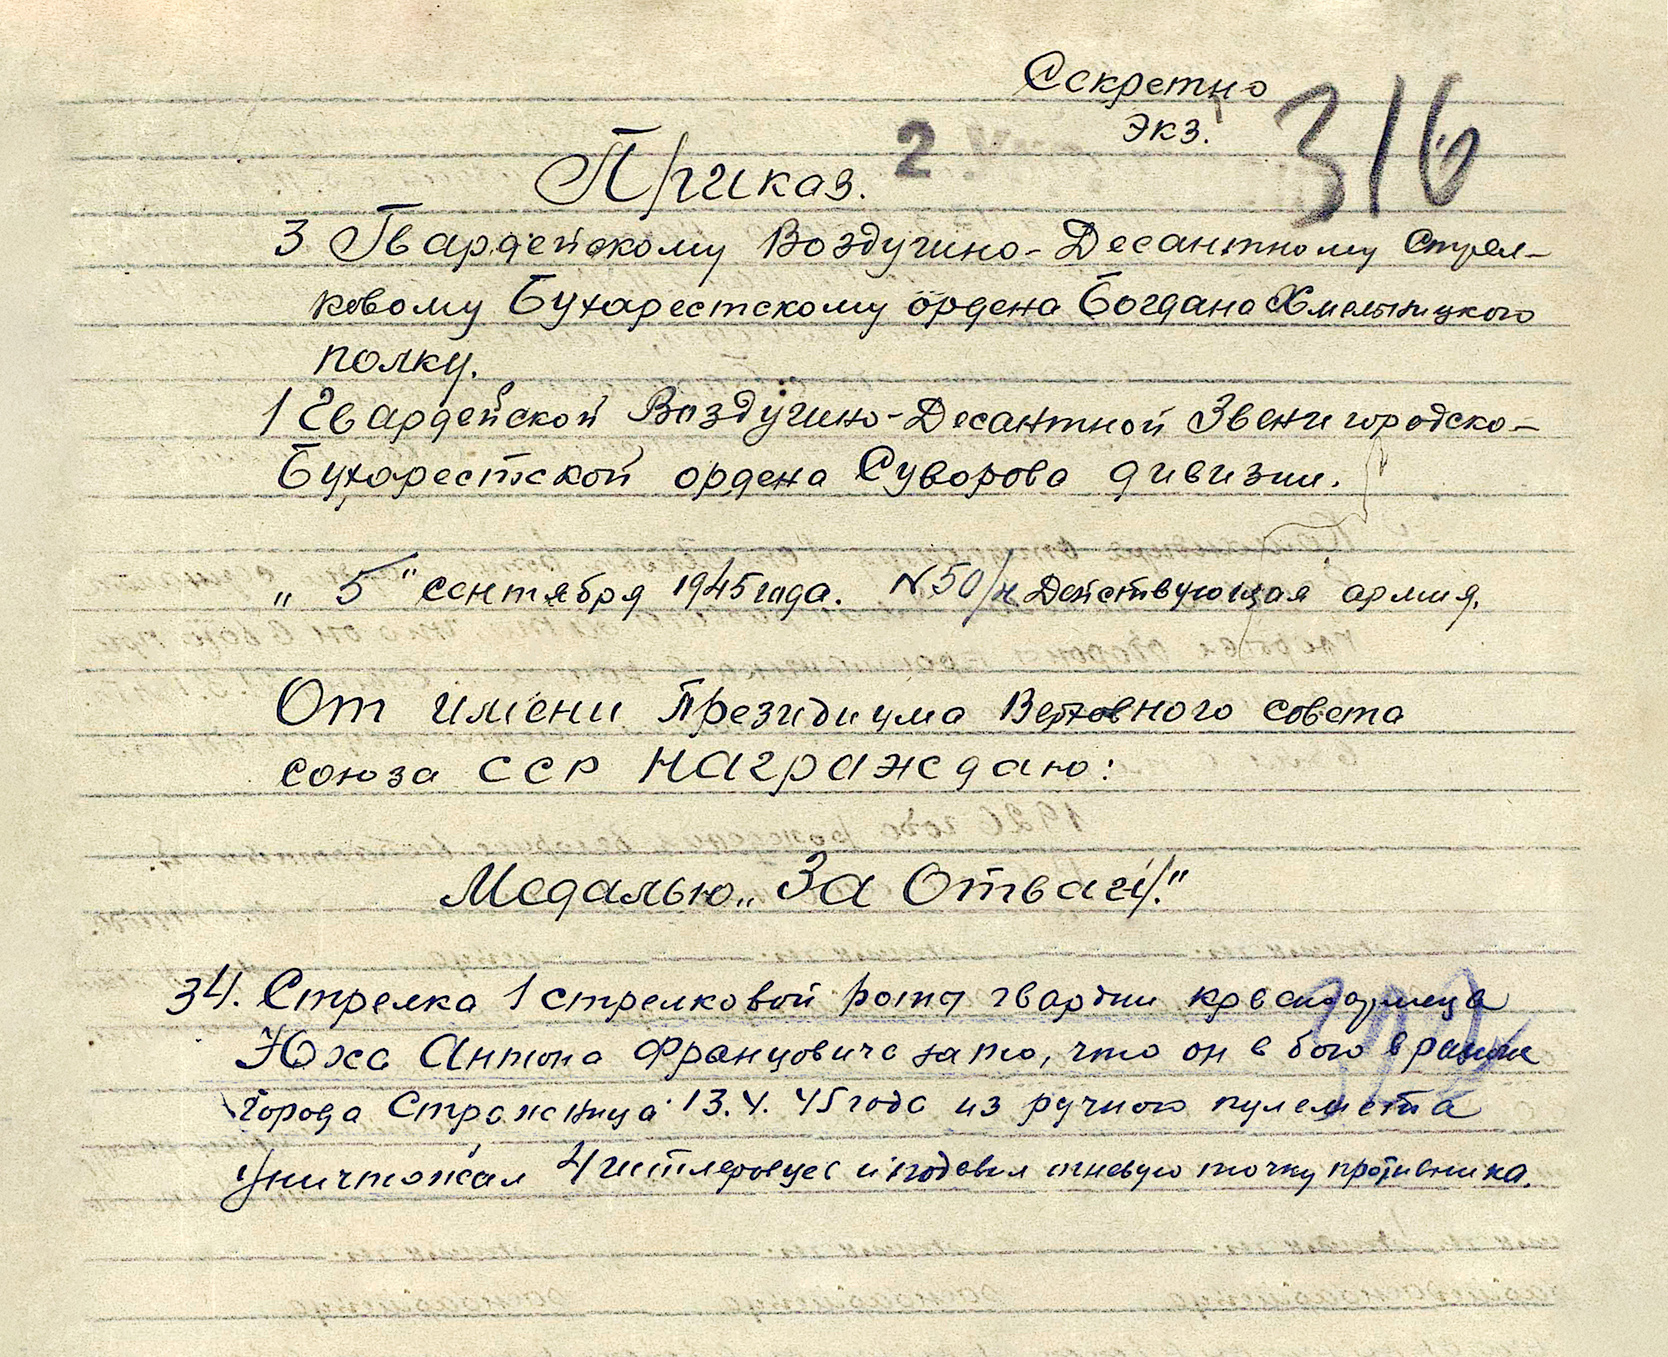 Секретно
Экз.
316
2
Приказ.
3 Гвардейскому Воздушно-Десантному Стрел-
ковому Бухарестскому ордена Богдана Хмельницкого
полку.
1 Гвардейской Воздушно-Десантной Звенигородско-
Бухарестской ордена Суворова дивизии.
„5" сентября 1945 года. №50/н Действующая армия.
От имени Президиума Верховного совета
союза ССР награждаю:
Медалью „За Отвагу."
34. Стрелка 1 стрелковой роты гвардии красноармейца
Юха Антона Францовича за то, что он в бою в районе
города Стражница 13.4.45 года из ручного пулемета
уничтожал 4 гитлеровцев и подавил огневую точку противника.